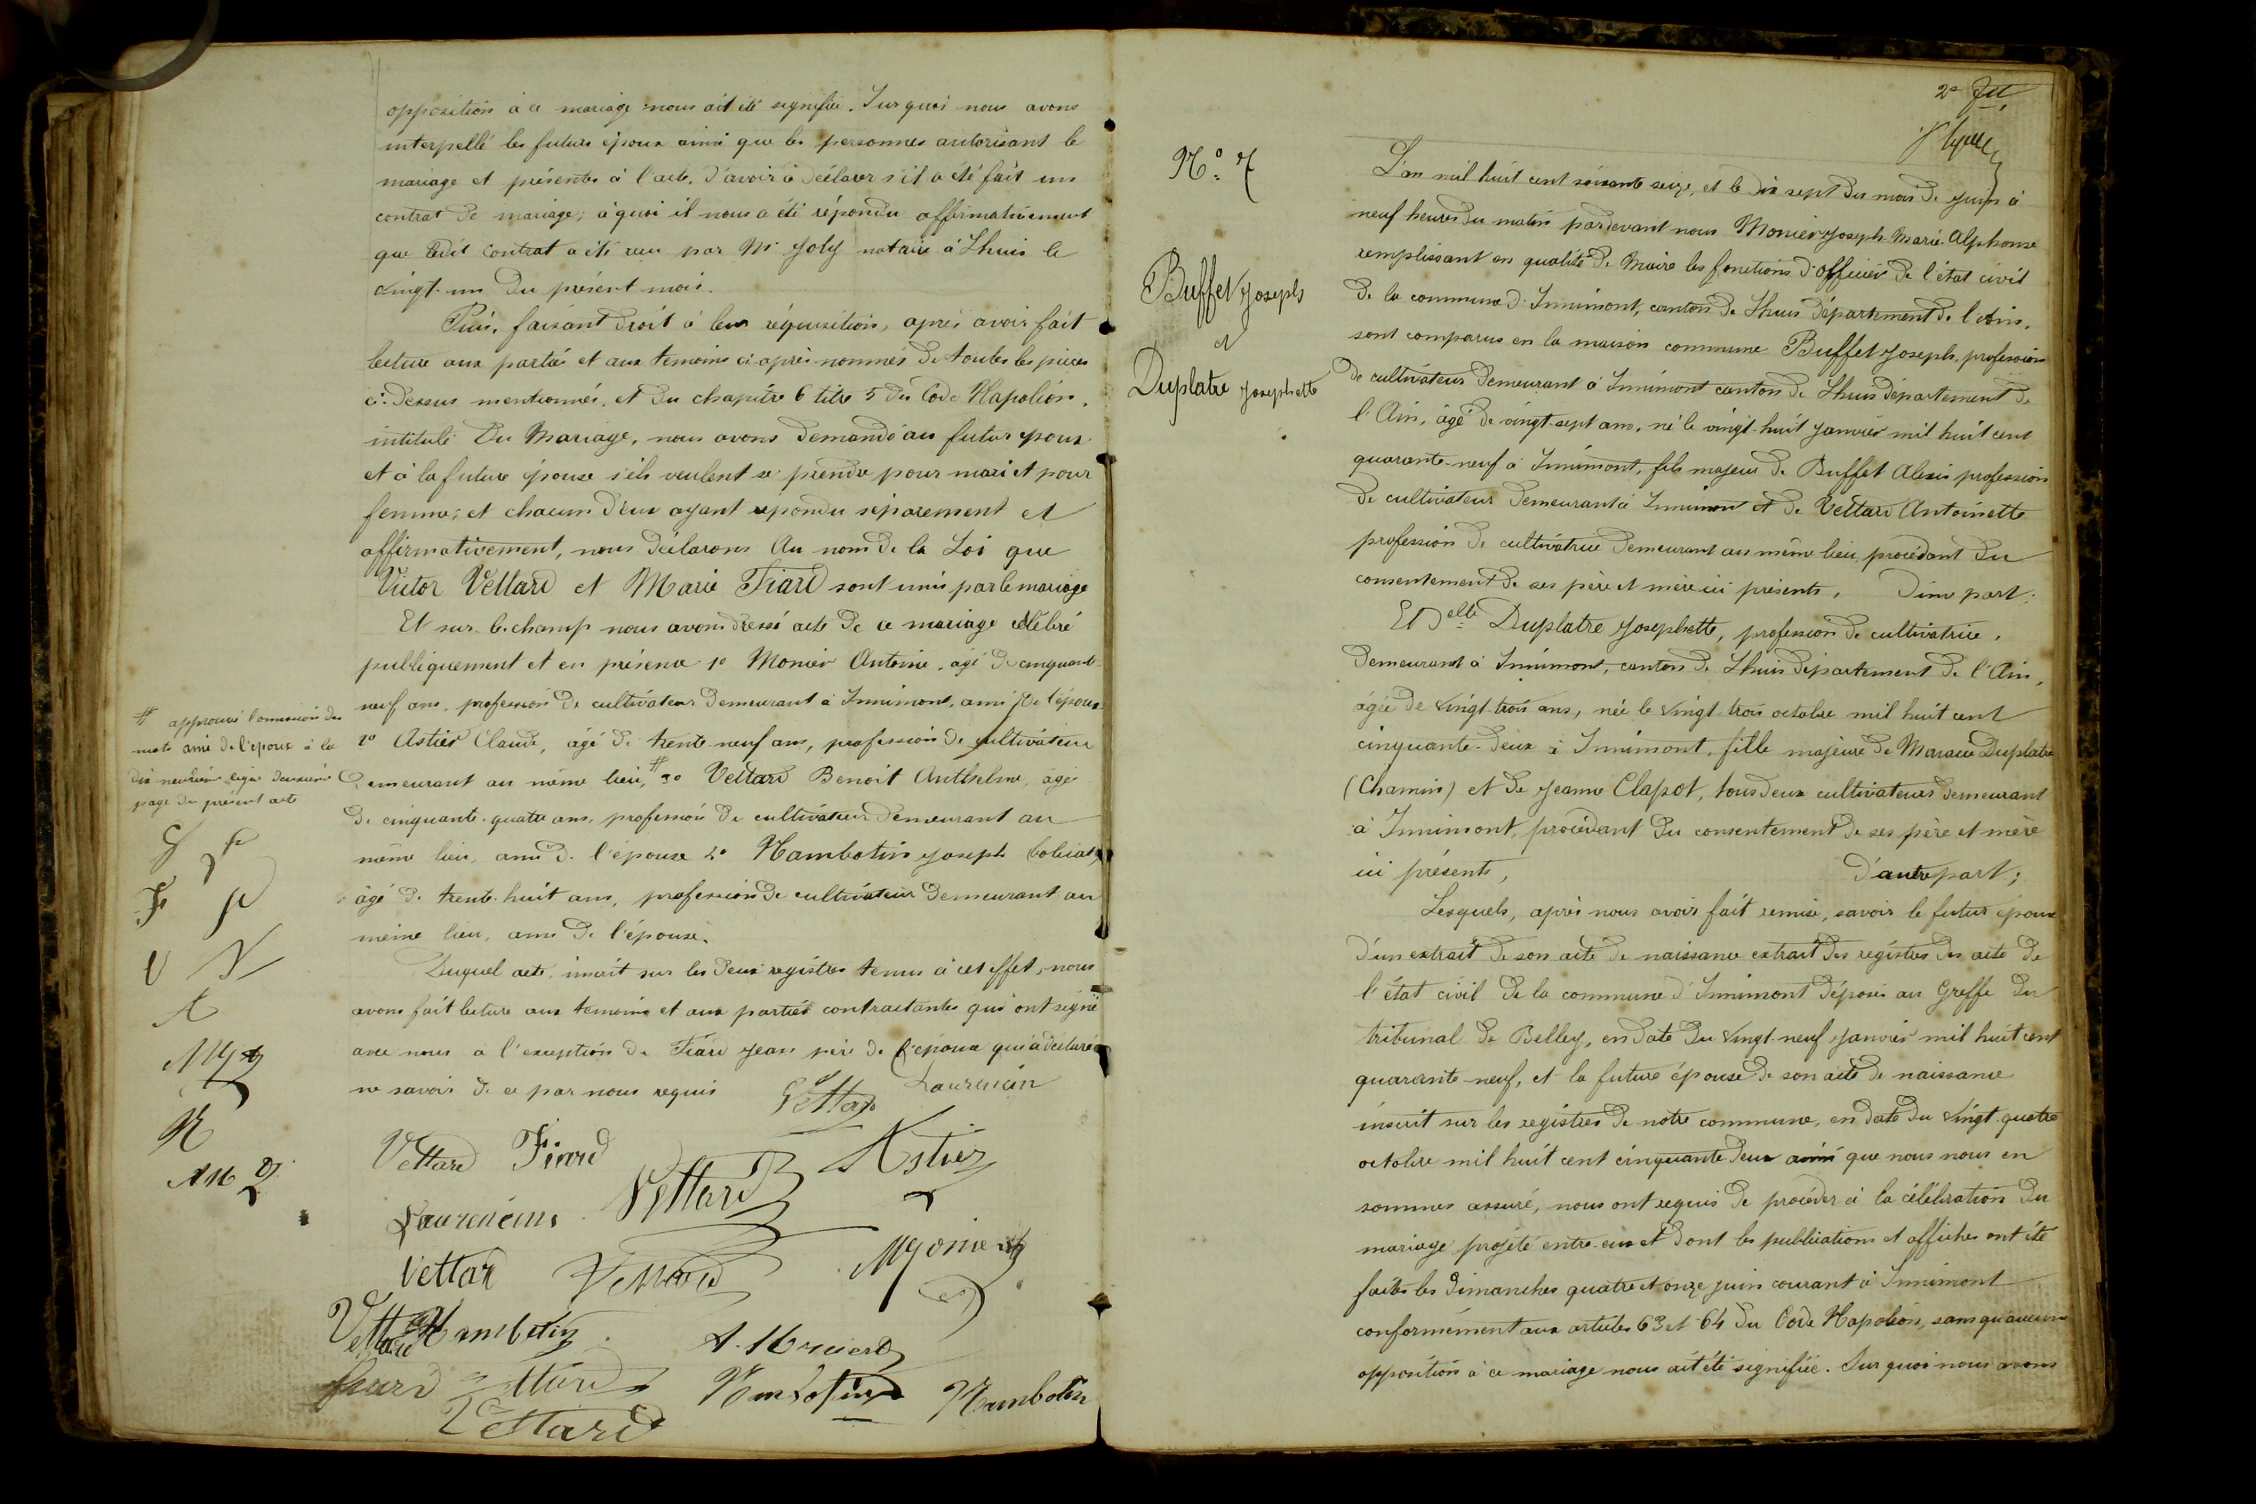 opposition à ce mariage nous ait été signifiée. Sur quoi nous avons
interpellé les futurs époux ainsi que les personnes autorisant le
mariage et présentes à l'acte, d'avoir à déclarer s'il a été fait un
contrat de mariage; à quoi il nous a été répondu affirmativement
que ledit contrat a été reçu par Me Joly notaire à Lhuis le
vingt-un du présent mois.
Puis, faisant droit à leur réquisition, après avoir fait
lecture aux parties et aux temoins ci-après nommés de toutes les pièces
ci-dessus mentionnés, et du chapitre 6 titre 5 du Code Napoléon,
intitulé Du Mariage, nous avons demandé au futur époux
et à la future épouse s'ils veulent se prendre pour mari et pour
femme; et chacun d'eux ayant repondu séparement et
affirmativement, nous déclarons Au nom de la Loi que
Victor Vettard et Marie Fiard sont unis par le mariage
Et sur-le-champ nous avons dressé acte de ce mariage célébré
publiquement et en présence 1o Monier Antoine, agé de cinquante
neuf ans, profession de cultivateur demeurant à Innimont, ami de l'époux
2o Astier Claude, agé de trente-neuf ans, profession de cultivateur
demeurant au même lieu, # 3o Vettard Benoit Anthelme, agé
de cinquante-quatre ans, profession de cultivateur demeurant au
même lieu, ami de l'épouse 4o Nambotin Joseph
âgé de trente-huit ans, profession de cultivateur demeurant au
meme lieu, ami de l'épouse.
Duquel acte, inscrit sur les deux registres tenus à cet effet, nous
avons fait lecture aux temoins et aux parties contractantes qui ont signé
avec nous à l'exception de Fiard Jean père de l'époux qui a déclaré
ne savoir de ce par nous requis
# approuvé l'omission des
mots ami de l'époux à la
dix neuvième ligne deuxième
page du présent acte
Vettard Laurencin
Vettard Fiard Astier
Laurencin Vettard
Vettard Vettard Monier
Vettard Nambotin A. Monier
Fiard Vettard Nambotin Nambotin
Vettard
2e
No 7
Buffet Joseph
et
Duplatre Josephette
L'an mil huit cent soixante seize, et le dix sept du mois de juin à
neuf heures du matin pardevant nous Monier Joseph Marie Alphonse
remplissant en qualité de Maire les fonctions d'officier de l'état civil
de la commune d'Innimont, canton de Lhuis département de l'Ain,
sont comparus en la maison commune Buffet Joseph, profession
de cultivateur demeurant à Innimont canton de Lhuis département de
l'Ain, âgé de vingt-sept ans, né le vingt-huit janvier mil huit cent
quarante-neuf à Innimont, fils majeur de Buffet Alexis profession
de cultivateur demeurant à Innimont et de Vettard Antoinette
profession de cultivatrice demeurant au même lieu, procédant du
consentement de ses père et mère ici présents, D'une part;
Et Delle Duplatre Josephette, profession de cultivatrice,
demeurant à Innimont, canton de Lhuis département de l'Ain,
âgée de vingt-trois ans, née le vingt-trois octobre mil huit cent
cinquante-deux à Innimont, fille majeure de Duplatre
(Chamin) et de Jeanne Clapot, tous deux cultivateurs demeurant
à Innimont, procédant du consentement de ses père et mère
ici présents, D'autre part;
Lesquels, après nous avoir fait remise, savoir le futur époux
d'un extrait de son acte de naissance extrait des registres des acte de
l'état civil de la commune d'Innimont déposés au Greffe du
tribunal de Belley, en date du vingt-neuf janvier mil huit cent
quarante-neuf, et la future épouse de son acte de naissance
inscrit sur les registres de notre commune, en date du vingt-quatre
octobre mil huit cent cinquante deux ainsi que nous nous en
sommes assuré, nous ont requis de procéder à la célébration du
mariage projeté entre eux et dont les publications et affiches ont été
faites les dimanches quatre et onze juin courant à Innimont
conformément aux articles 63 et 64 du Code Napoléon, sans qu'aucune
opposition à ce mariage nous ait été signifiée. Sur quoi nous avons